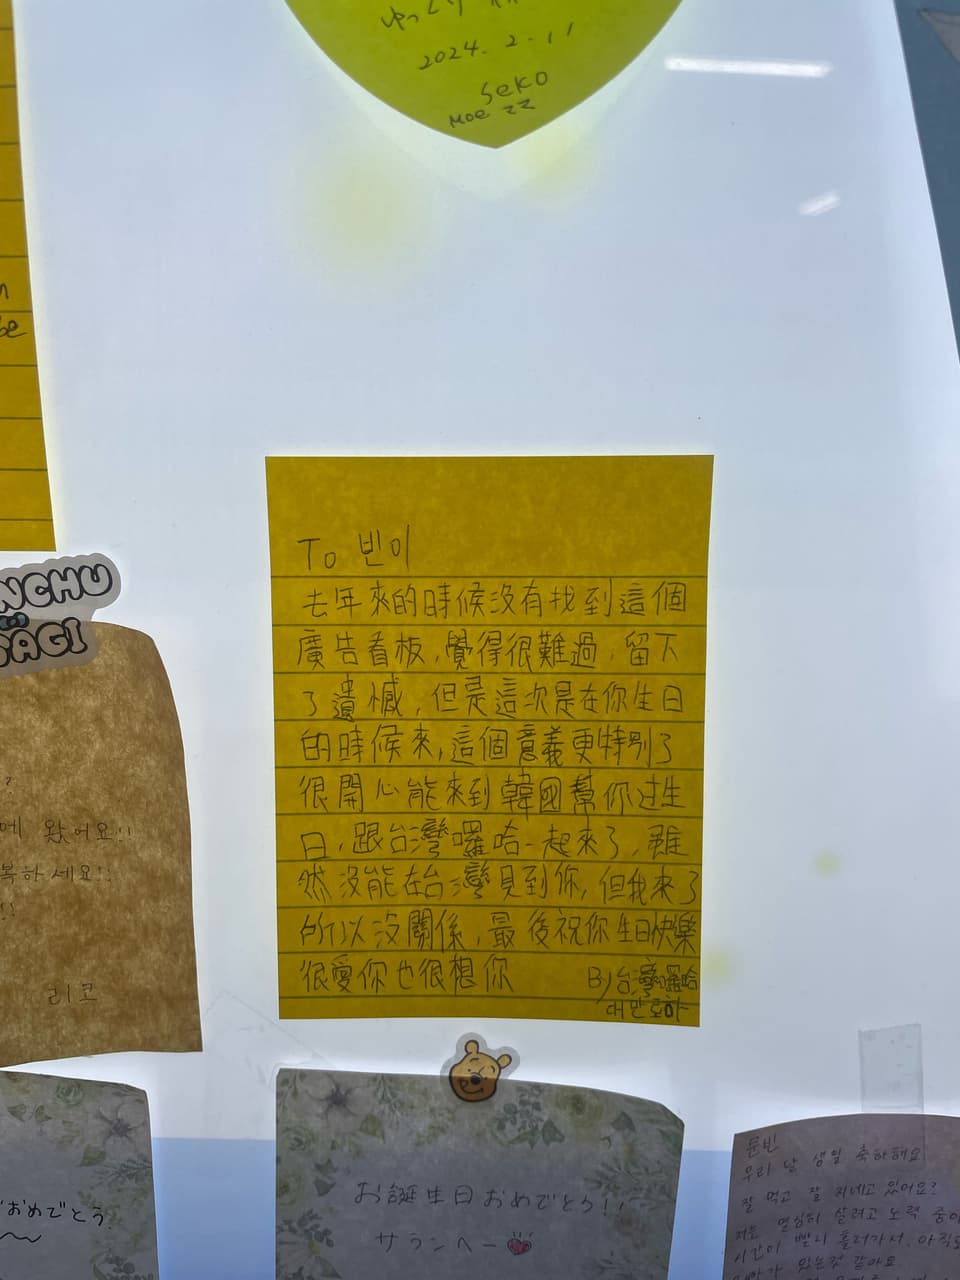 ゆっくり
2024.2.11
Seko
Moe ママ
be
NCHU
SAGI
To 빈이
去年來的時候沒有找到這個
廣告看板,覺得很難過,留下
了遺憾,但是這次是在你生日
的時候來,這個意義更特別了
很開心能來到韓國幫你過生
日,跟台灣囉哈一起來了,雖
然沒能在台灣見到你,但我來了
所以沒關係,最後祝你生日快樂
很愛你也很想你
By台灣囉哈
대만로하
에 왔어요!!
복하세요!!
!!
리코
おめでとう
お誕生日おめでとう!!
サランヘー
문빈
우리 남 생일 축하해요
잘 먹고 잘 지내고 있어요?
저는 열심히 살려고 노력 중이
시간이 빨리 흘러가서, 아직도
있는것 같아요